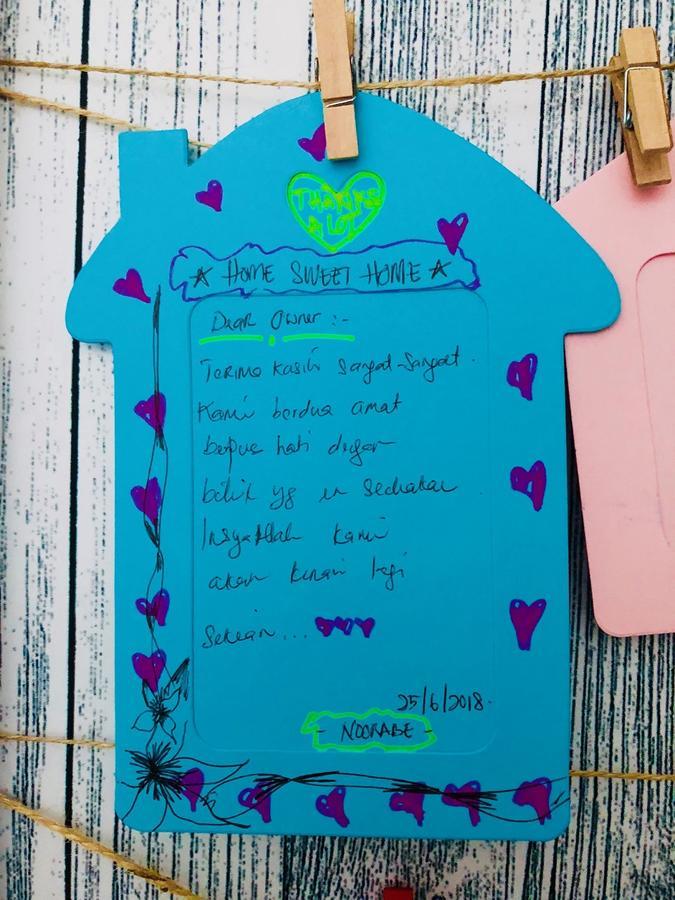 THANKS
A LOT
★ HOME SWEET HOME ★
Dear Owner :-
Terima kasih sangat-sangat.
Kami berdua amat
berpuas hati dengan
bilik yg di sediakan.
InsyaAllah kami
akan kunai lagi
Sekian...
25/6/2018.
- NOORABE -